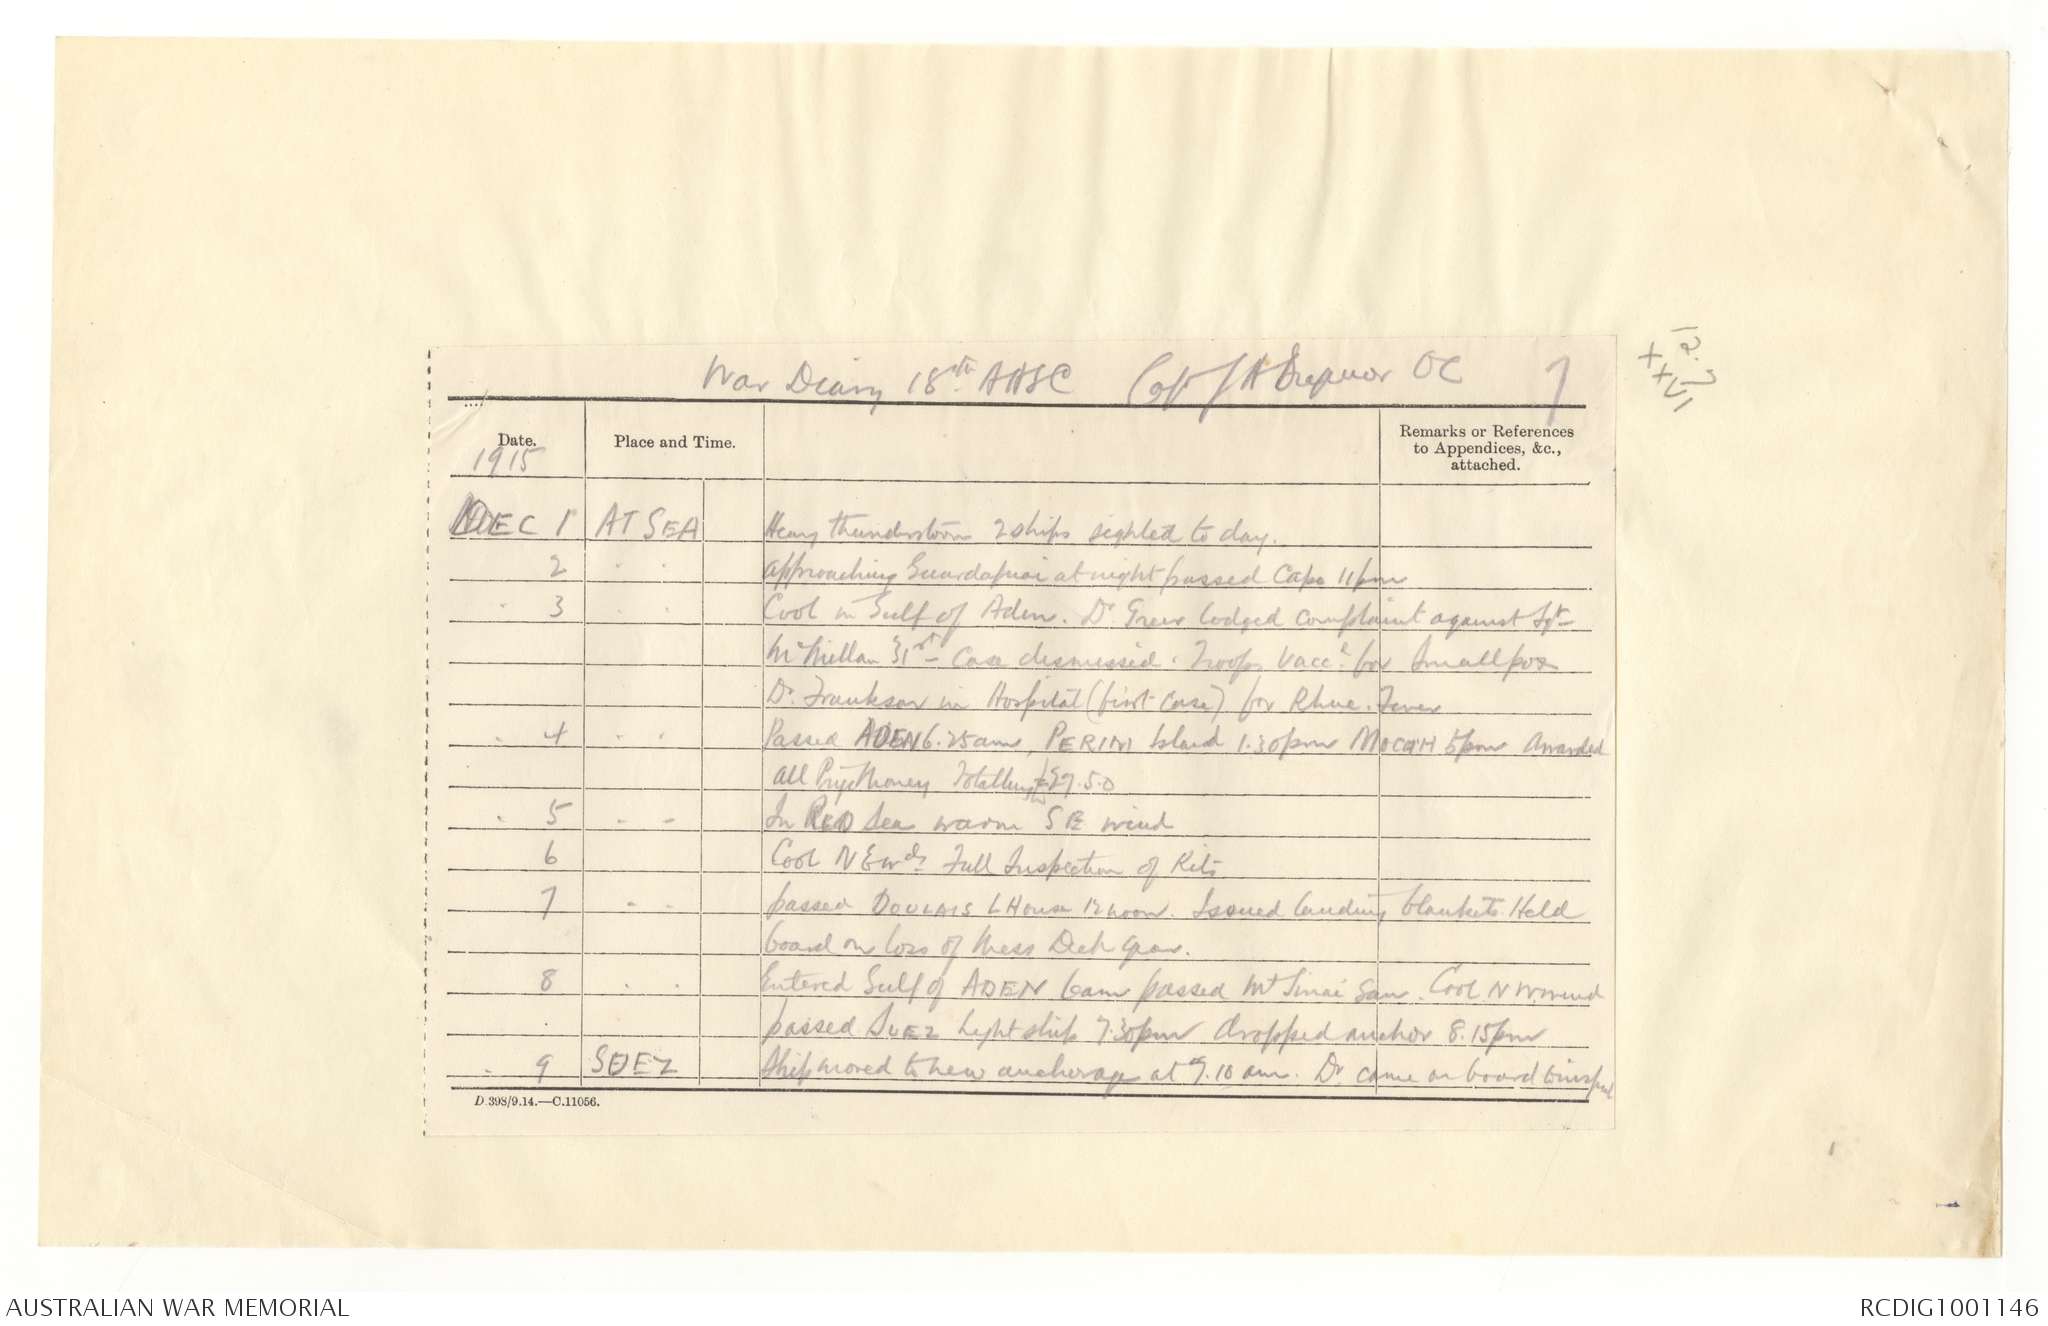 War Diary 18th AASC Capt J A OC 7
12.7
XXVI
Date. Place and Time. Remarks or References
to Appendices, &c.,
attached.
1915
DEC 1 AT SEA Heavy thunderstorm 2 ships sighted to day.
2 " " approaching Guardafui at night passed Cape 11pm
" 3 " " Cool in Gulf of Aden. Dr. lodged complaint against Sgt
McMillan 31st Case dismissed. Troops Vaccd for Smallpox
Dr. in Hospital (first case) for Rhue. Fever
" 4 " " Passed ADEN 6.25am, PERIM Island 1.30pm MOCAH 5pm Awarded
all Prize Money Totalling 5.0
" 5 " " In RED Sea warm SE wind
6 Cool N E wds Full Inspection of Kits
7 " " passed L House 12 noon. Issued landing blankets. Held
board on loss of Mess Deck gear.
8 " " Entered Gulf of ADEN 6am passed Mt Sinai 9am. Cool N W wind
passed SUEZ Light ship 7.30pm dropped anchor 8.15pm
" 9 SUEZ Ship moved to new anchorage at 9.10 am. Dr. came on board to inspect
D.398/9.14.—C.11056.
AUSTRALIAN WAR MEMORIAL RCDIG1001146